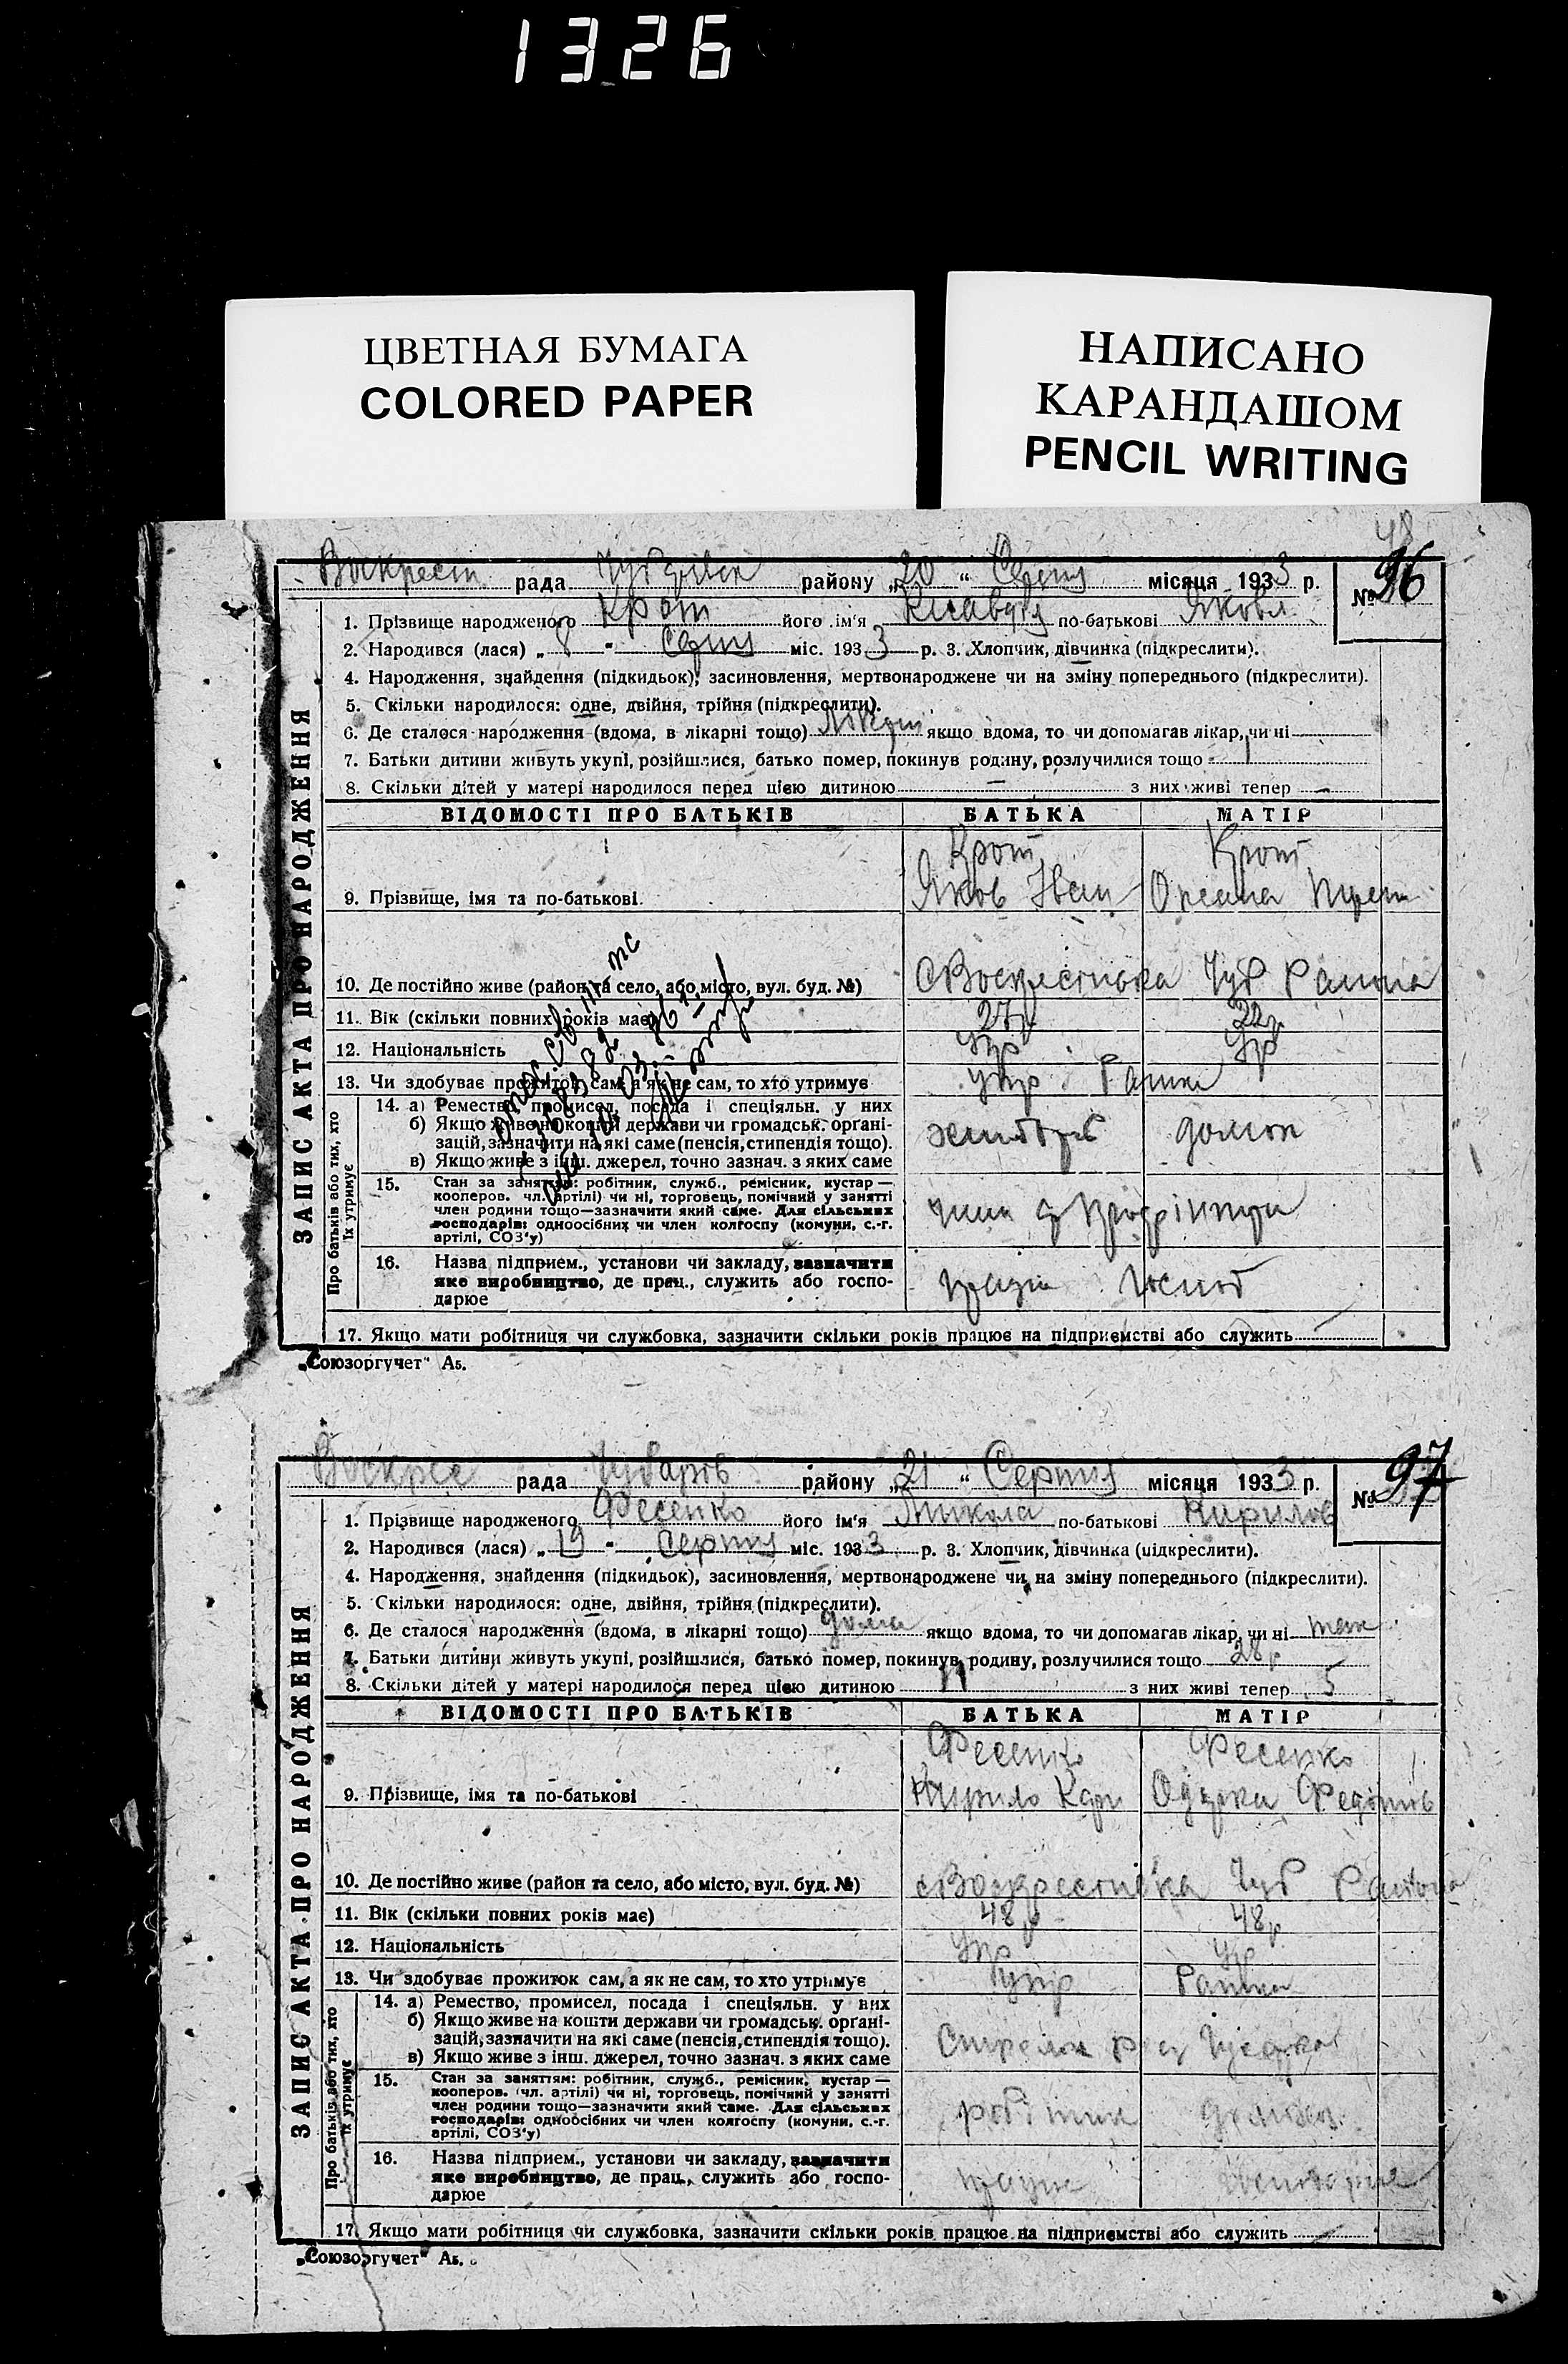 1326
ЦВЕТНАЯ БУМАГА
COLORED PAPER
НАПИСАНО
КАРАНДАШОМ
PENCIL WRITING
48
ЗАПИС АКТА ПРО НАРОДЖЕННЯ
Воскресен рада району „20“ Серпня місяця 1933 р. № 96
1. Прізвище народженого Крот його ім'я по-батькові Яковл
2. Народився (лася) „8“ Серпня міс. 1933 р. 3. Хлопчик, дівчинка (підкреслити).
4. Народження, знайдення (підкидьок), засиновлення, мертвонароджене чи на зміну попереднього (підкреслити).
5. Скільки народилося: одне, двійня, трійня (підкреслити).
6. Де сталося народження (вдома, в лікарні тощо) якщо вдома, то чи допомагав лікар, чи ні
7. Батьки дитини живуть укупі, розійшлися, батько помер, покинув родину, розлучилися тощо
8. Скільки дітей у матері народилося перед цією дитиною — з них живі тепер —
ВІДОМОСТІ ПРО БАТЬКІВ БАТЬКА МАТІР
Крот Крот
9. Прізвище, імя та по-батькові. Яков Іван
10. Де постійно живе (район та село, або місто, вул. буд. №) Чуб
11. Вік (скільки повних років має) 27р 22р
12. Національність Укр Ур
13. Чи здобуває прожиток сам, а як не сам, то хто утримує
Про батьків або тих, хто їх утримує
14. а) Ремество, промисел, посада і спеціяльн. у них
б) Якщо живе на кошти держави чи громадськ. орґані-
зацій, зазначити на які саме (пенсія, стипендія тощо).
в) Якщо живе з інш. джерел, точно зазнач. з яких саме
15. Стан за заняттям: робітник, служб., ремісник, кустар —
кооперов. чл. артілі) чи ні, торговець, помічний у занятті
член родини тощо—зазначити який саме. Для сільських
господарів: одноосібних чи член колгоспу (комуни, с.-г.
артілі, СОЗ'у)
16. Назва підприєм., установи чи закладу, зазначити
яке виробництво, де прац., служить або госпо-
дарює
17. Якщо мати робітниця чи службовка, зазначити скільки років працює на підприємстві або служить
„Союзоргучет“ А5.
ЗАПИС АКТА ПРО НАРОДЖЕННЯ
Воскрес рада Чубарів району „21“ Серпня місяця 1933 р. № 97
1. Прізвище народженого Фесенко його ім'я Микола по-батькові Кирилов
2. Народився (лася) „19“ Серпня міс. 1933 р. 3. Хлопчик, дівчинка (підкреслити).
4. Народження, знайдення (підкидьок), засиновлення, мертвонароджене чи на зміну попереднього (підкреслити).
5. Скільки народилося: одне, двійня, трійня (підкреслити).
6. Де сталося народження (вдома, в лікарні тощо) дома якщо вдома, то чи допомагав лікар, чи ні так
7. Батьки дитини живуть укупі, розійшлися, батько помер, покинув родину, розлучилися тощо 28р
8. Скільки дітей у матері народилося перед цією дитиною 11 з них живі тепер 5
ВІДОМОСТІ ПРО БАТЬКІВ БАТЬКА МАТІР
Фесенко Фесенко
9. Прізвище, імя та по-батькові Кирило Одарка
10. Де постійно живе (район та село, або місто, вул. буд. №) Чуб
11. Вік (скільки повних років має) 48р 48р
12. Національність Укр Ур
13. Чи здобуває прожиток сам, а як не сам, то хто утримує
Про батьків або тих, хто їх утримує
14. а) Ремество, промисел, посада і спеціяльн. у них
б) Якщо живе на кошти держави чи громадськ. орґані-
зацій, зазначити на які саме (пенсія, стипендія тощо).
в) Якщо живе з інш. джерел, точно зазнач. з яких саме
15. Стан за заняттям: робітник, служб., ремісник, кустар —
кооперов. (чл. артілі) чи ні, торговець, помічний у занятті
член родини тощо—зазначити який саме. Для сільських
господарів: одноосібних чи член колгоспу (комуни, с.-г.
артілі, СОЗ'у)
16. Назва підприєм., установи чи закладу, зазначити
яке виробництво, де прац., служить або госпо-
дарює
17. Якщо мати робітниця чи службовка, зазначити скільки років працює на підприємстві або служить
„Союзоргучет“ А5.